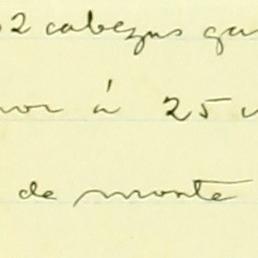 2 cabezas ga
or á 25 v
de monte